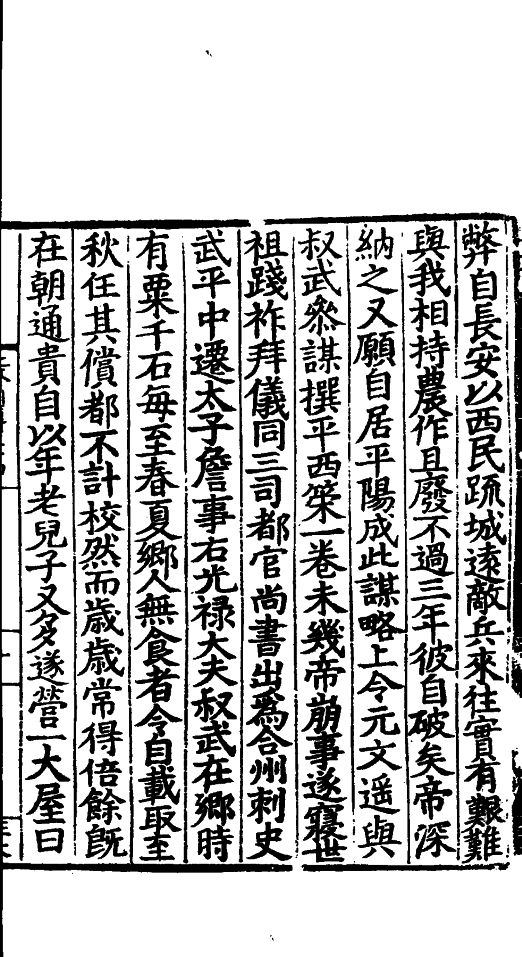 弊自長安以西民疏城遠敵兵來往實有艱難
與我相持農作且廢不過三年彼自破矣帝深
納之又願自居平陽成此謀略上令元文遥與
叔武叅謀撰平西䇿一卷未幾帝崩事遂寢世
祖踐祚拜儀同三司都官尚書出爲合州刺史
武平中遷太子詹事右光禄大夫叔武在鄉時
有粟千石毎至春夏鄉人無食者令自載取至
秋任其償都不計校然而歳歳常得倍餘旣
在朝通貴自以年老兒子又多遂營一大屋曰